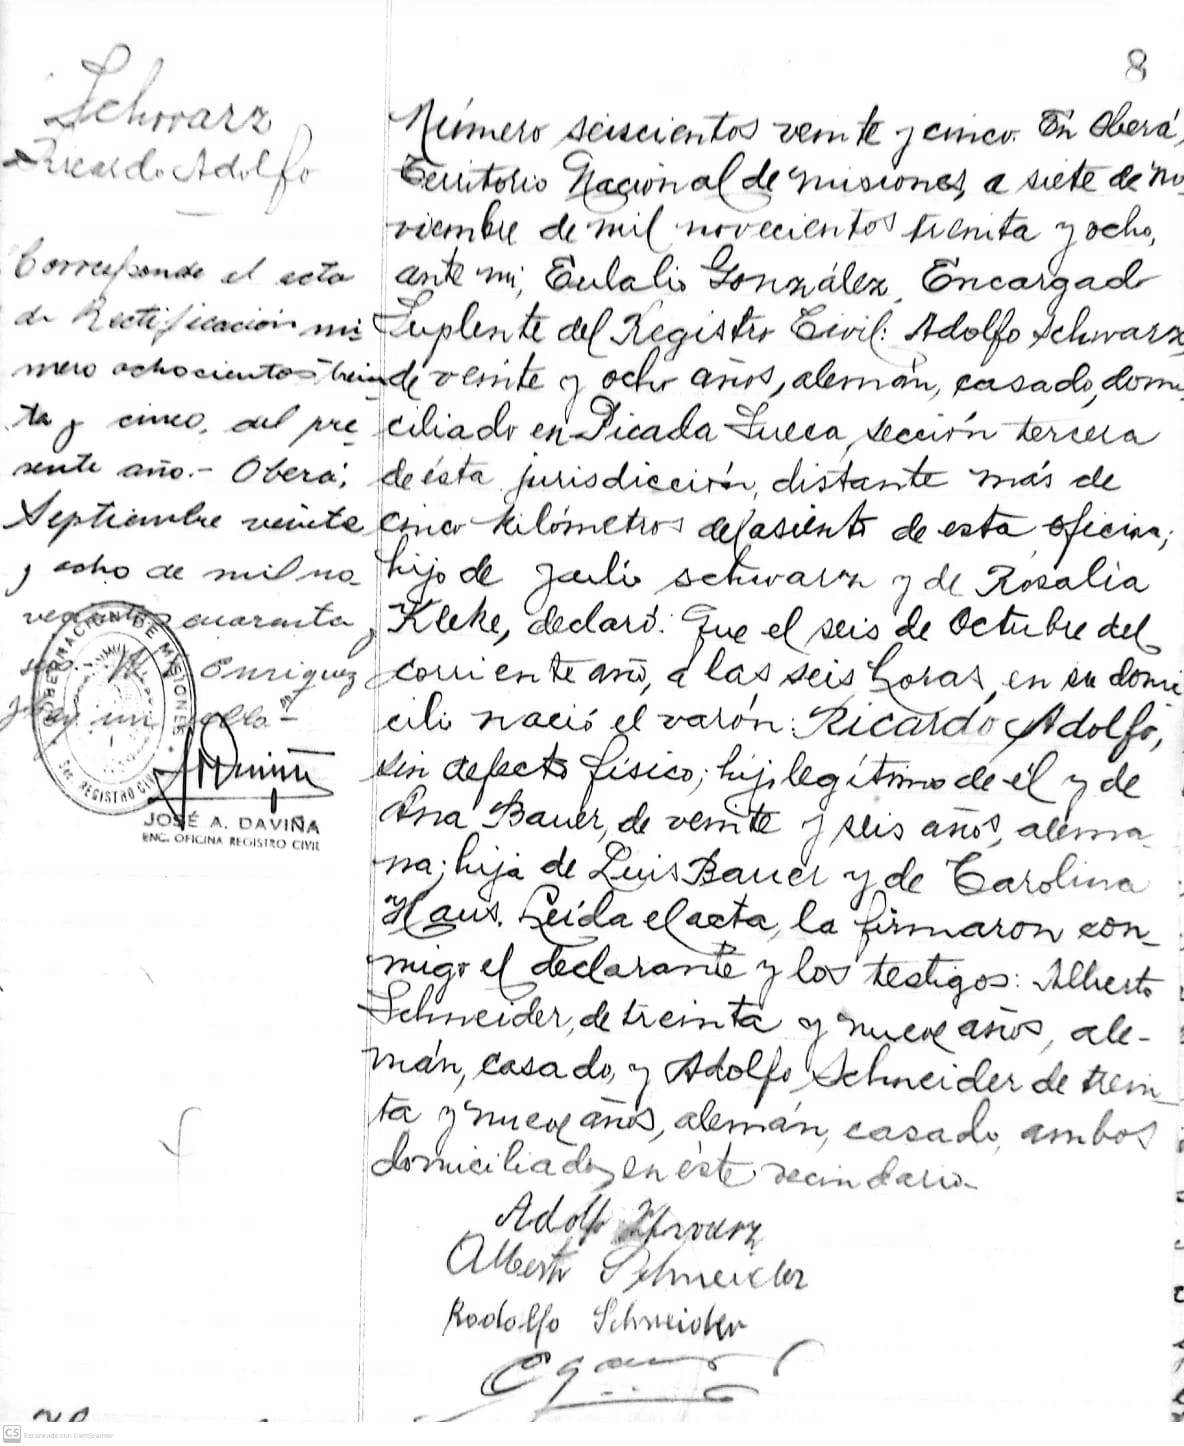 8
Schwarz
Ricardo Adolfo
Corresponde el acta
de Rectificación nú-
mero ochocientos trein-
ta y cinco, del pre-
sente año.- Oberá,
Septiembre veinte
y ocho de mil no-
vecientos cuarenta y
Enriquez
GOBERNACION DE MISIONES
REGISTRO CIVIL
JOSÉ A. DAVIÑA
ENC. OFICINA REGISTRO CIVIL
Número seiscientos veinte y cinco. En Oberá,
Territorio Nacional de Misiones, a siete de No-
viembre de mil novecientos treinta y ocho,
ante mi, Eulalio González, Encargado
Suplente del Registro Civil: Adolfo Schwarz,
de veinte y ocho años, alemán, casado, domi-
ciliado en Picada Sueca, sección tercera
de ésta jurisdicción, distante más de
cinco kilómetros del asiento de esta oficina;
hijo de Julio Schwarz y de Rosalia
Kleke, declaró: Que el seis de Octubre del
corriente año, a las seis horas, en su domi-
cilio nació el varón: Ricardo Adolfo,
sin defecto físico; hijo legítimo de él y de
Ana Bauer, de veinte y seis años, alema-
na; hija de Luis Bauer y de Carolina
Haus. Leída el acta, la firmaron con-
migo el declarante y los testigos: Alberto
Schneider, de treinta y nueve años, ale-
mán, casado, y Adolfo Schneider de trein-
ta y nueve años, alemán, casado, ambos
domiciliados en éste vecindario-
Adolf Schwarz
Alberto Schneider
Rodolfo Schneider
CS Escaneado con CamScanner